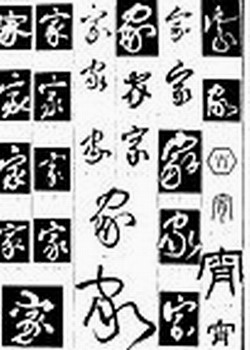 家家宵宵宵宵
家家家家家
家家家
家家家
家家
家家家家
家家家家
家